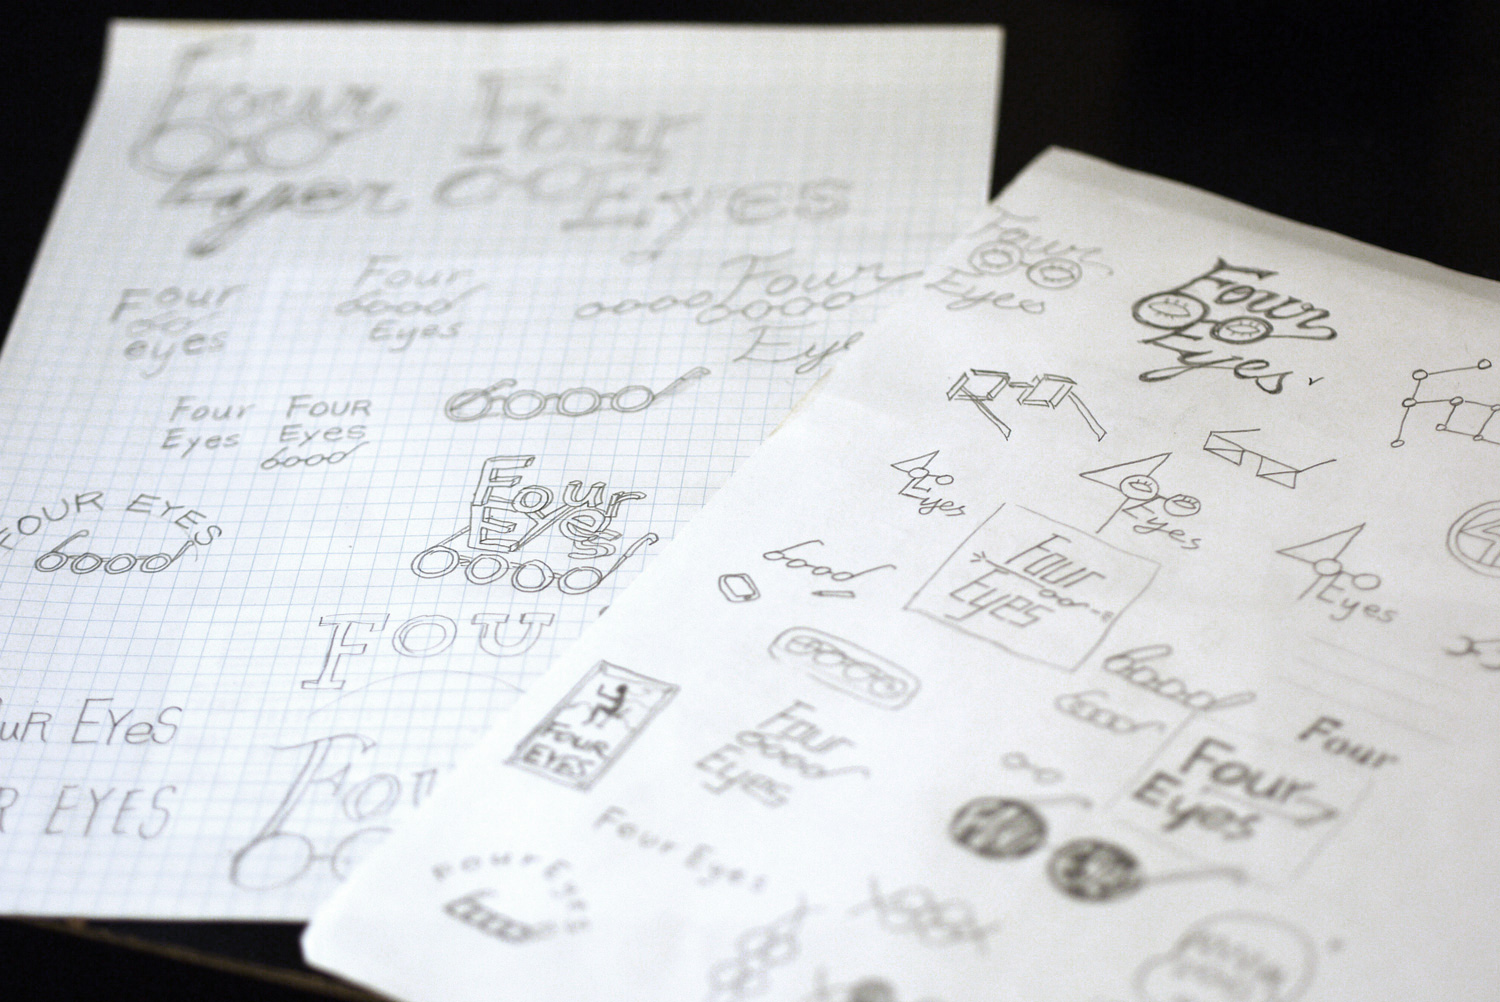 Four
Four
Eyes
Four
eyes
Four
Eyes
Four
Eye
Four
Eyes
FOUR
Eyes
FOUR EYES
Four
Eyes
FOU
uR EYeS
R EYES
Four
Eyes
Four
Eyes
Eyes
Eyes
Eyes
Four
Eyes
FOUR
EYES
Four
Eyes
Four
Four
Eyes
Four Eyes
Four Eyes